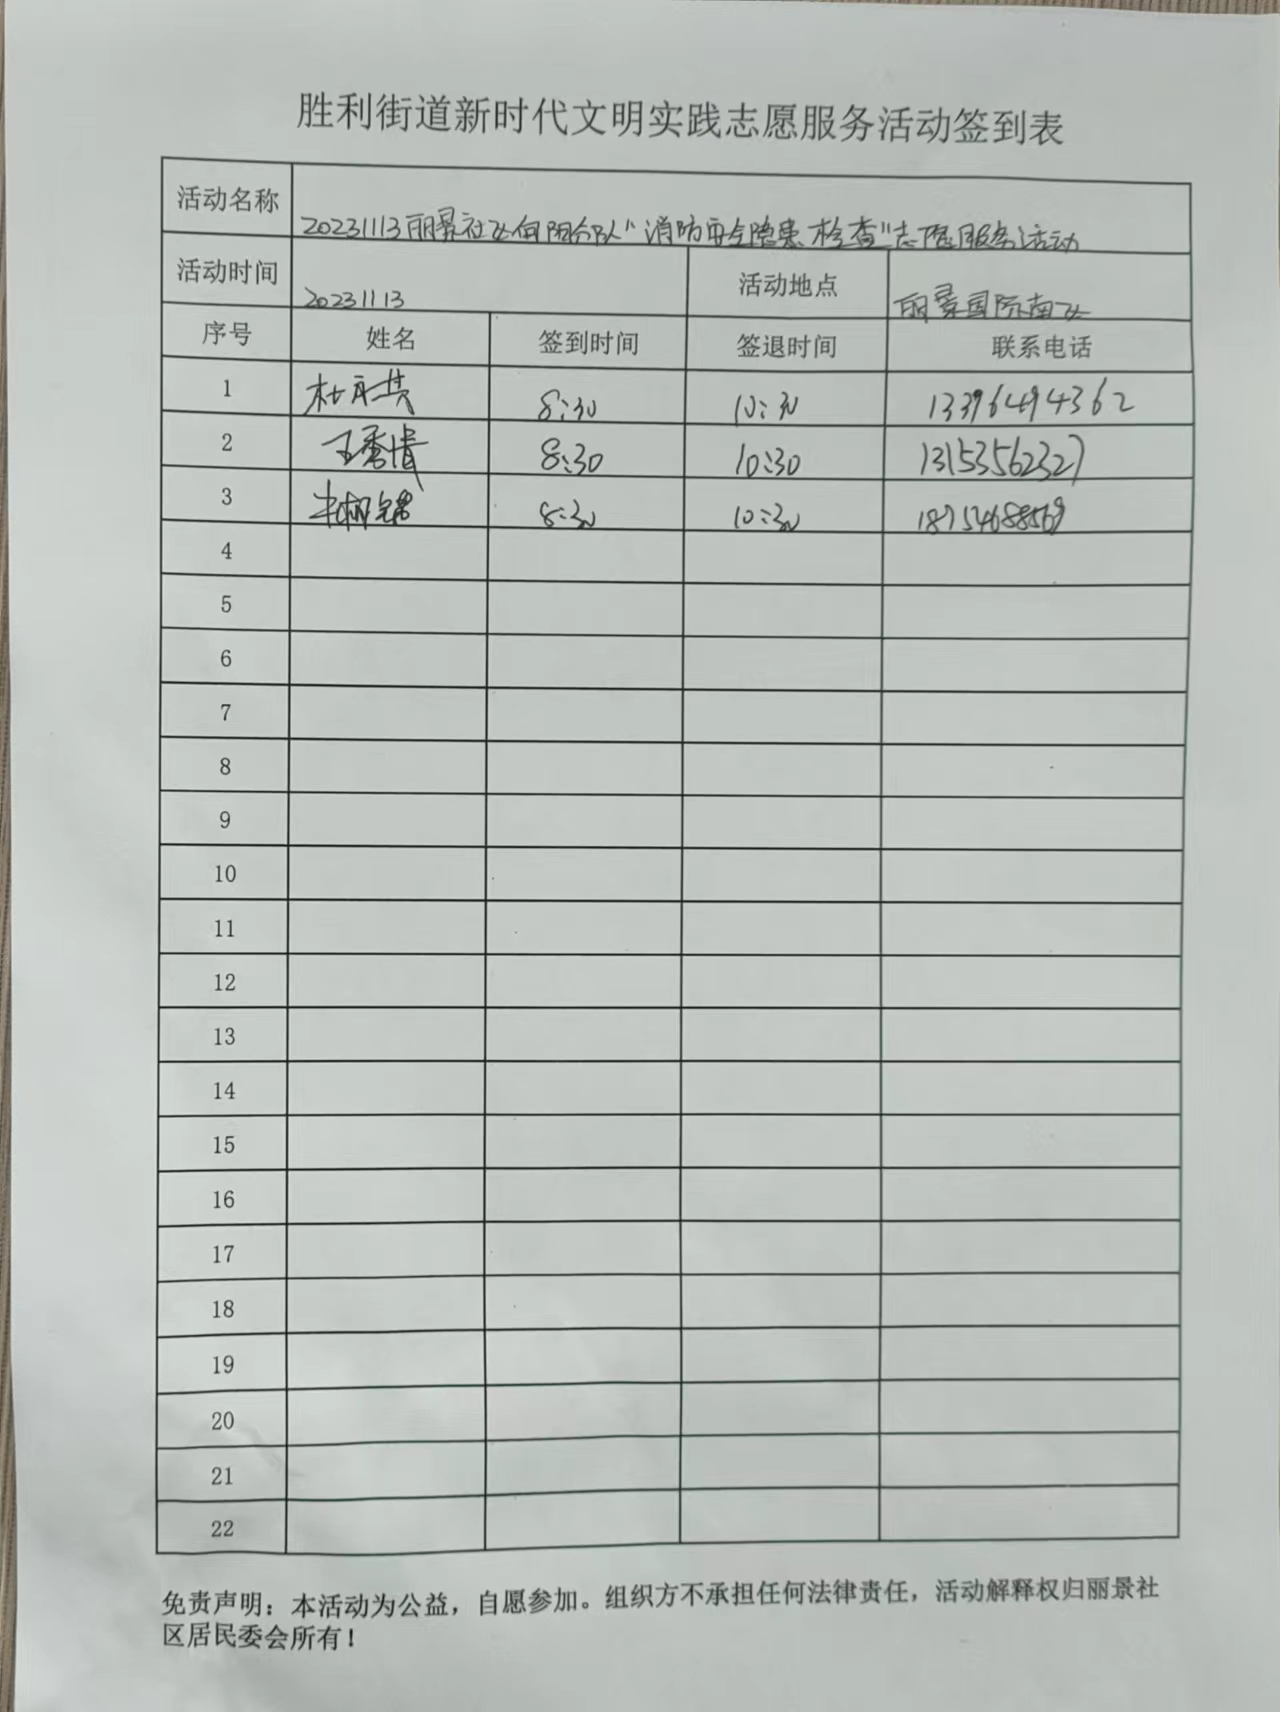 胜利街道新时代文明实践志愿服务活动签到表
活动名称 20231113丽景社区向阳分队“消防安全隐患检查”志愿服务活动
活动时间 20231113 活动地点 丽景国际南区
序号 姓名 签到时间 签退时间 联系电话
1 杜永洪 8:30 10:30 13396494362
2 王秀清 8:30 10:30 13153562327
3 8:30 10:30 18754688569
4
5
6
7
8
9
10
11
12
13
14
15
16
17
18
19
20
21
22
免责声明：本活动为公益，自愿参加。组织方不承担任何法律责任，活动解释权归丽景社
区居民委会所有！